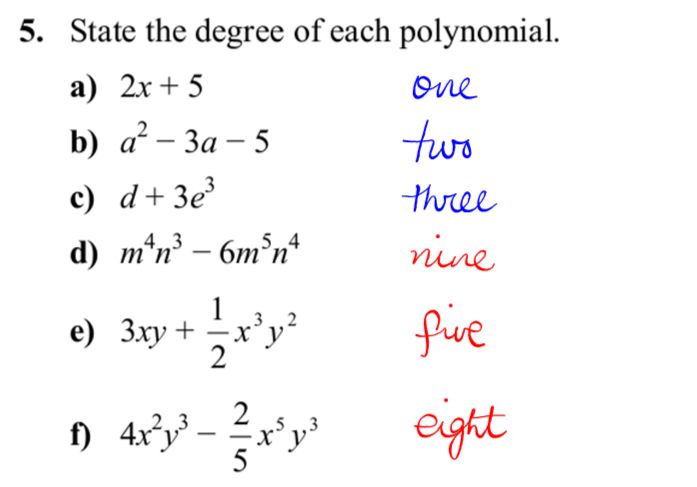 5. State the degree of each polynomial.
a) 2x + 5 one
b) a² – 3a – 5 two
c) d + 3e³ three
d) m⁴n³ – 6m⁵n⁴ nine
e) 3xy + 1/2 x³y² five
f) 4x²y³ – 2/5 x⁵y³ eight